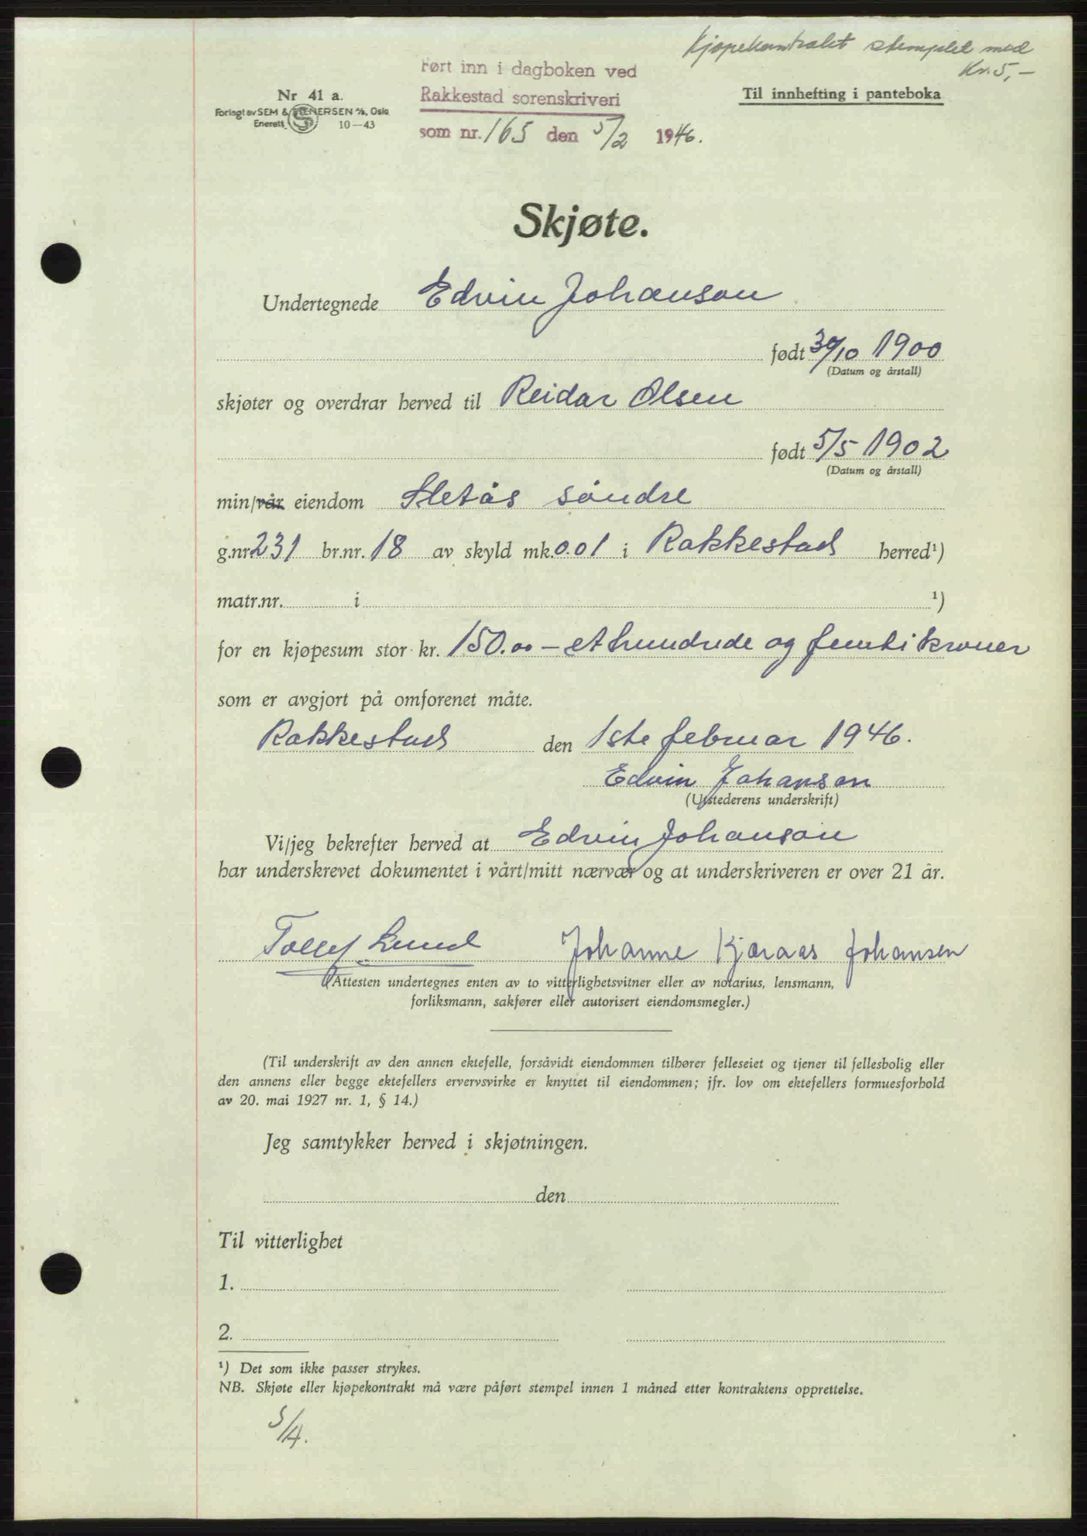 Kjøpekontrakt stemplet med
Kr. 5,-
Ført inn i dagboken ved
Rakkestad sorenskriveri
som nr. 165 den 5/2 1946.
Nr 41 a.
Forlagt av SEM & STENERSEN A/S, Oslo
Enerett 10-43
Til innhefting i panteboka
Skjøte.
Undertegnede Edvin Johanson
født 30/10 1900
(Datum og årstall)
skjøter og overdrar herved til Reidar Olsen
født 5/5 1902
(Datum og årstall)
min/vår eiendom Sletås søndre
g.nr. 231 br.nr. 18 av skyld mk. 0.01 i Rakkestad herred¹)
matr.nr. i ¹)
for en kjøpesum stor kr. 150.00 – ethundrede og femti kroner
som er avgjort på omforenet måte.
Rakkestad den 1ste februar 1946.
Edvin Johanson
(Utstederens underskrift)
Vi/jeg bekrefter herved at Edvin Johanson
har underskrevet dokumentet i vårt/mitt nærvær og at underskriveren er over 21 år.
Tollef Lund Johanne Kjæraas Johansen
(Attesten undertegnes enten av to vitterlighetsvitner eller av notarius, lensmann,
forliksmann, sakfører eller autorisert eiendomsmegler.)
(Til underskrift av den annen ektefelle, forsåvidt eiendommen tilhører felleseiet og tjener til fellesbolig eller
den annens eller begge ektefellers ervervsvirke er knyttet til eiendommen; jfr. lov om ektefellers formuesforhold
av 20. mai 1927 nr. 1, § 14.)
Jeg samtykker herved i skjøtningen.
den
Til vitterlighet
1.
2.
¹) Det som ikke passer strykes.
NB. Skjøte eller kjøpekontrakt må være påført stempel innen 1 måned etter kontraktens opprettelse.
5/4.